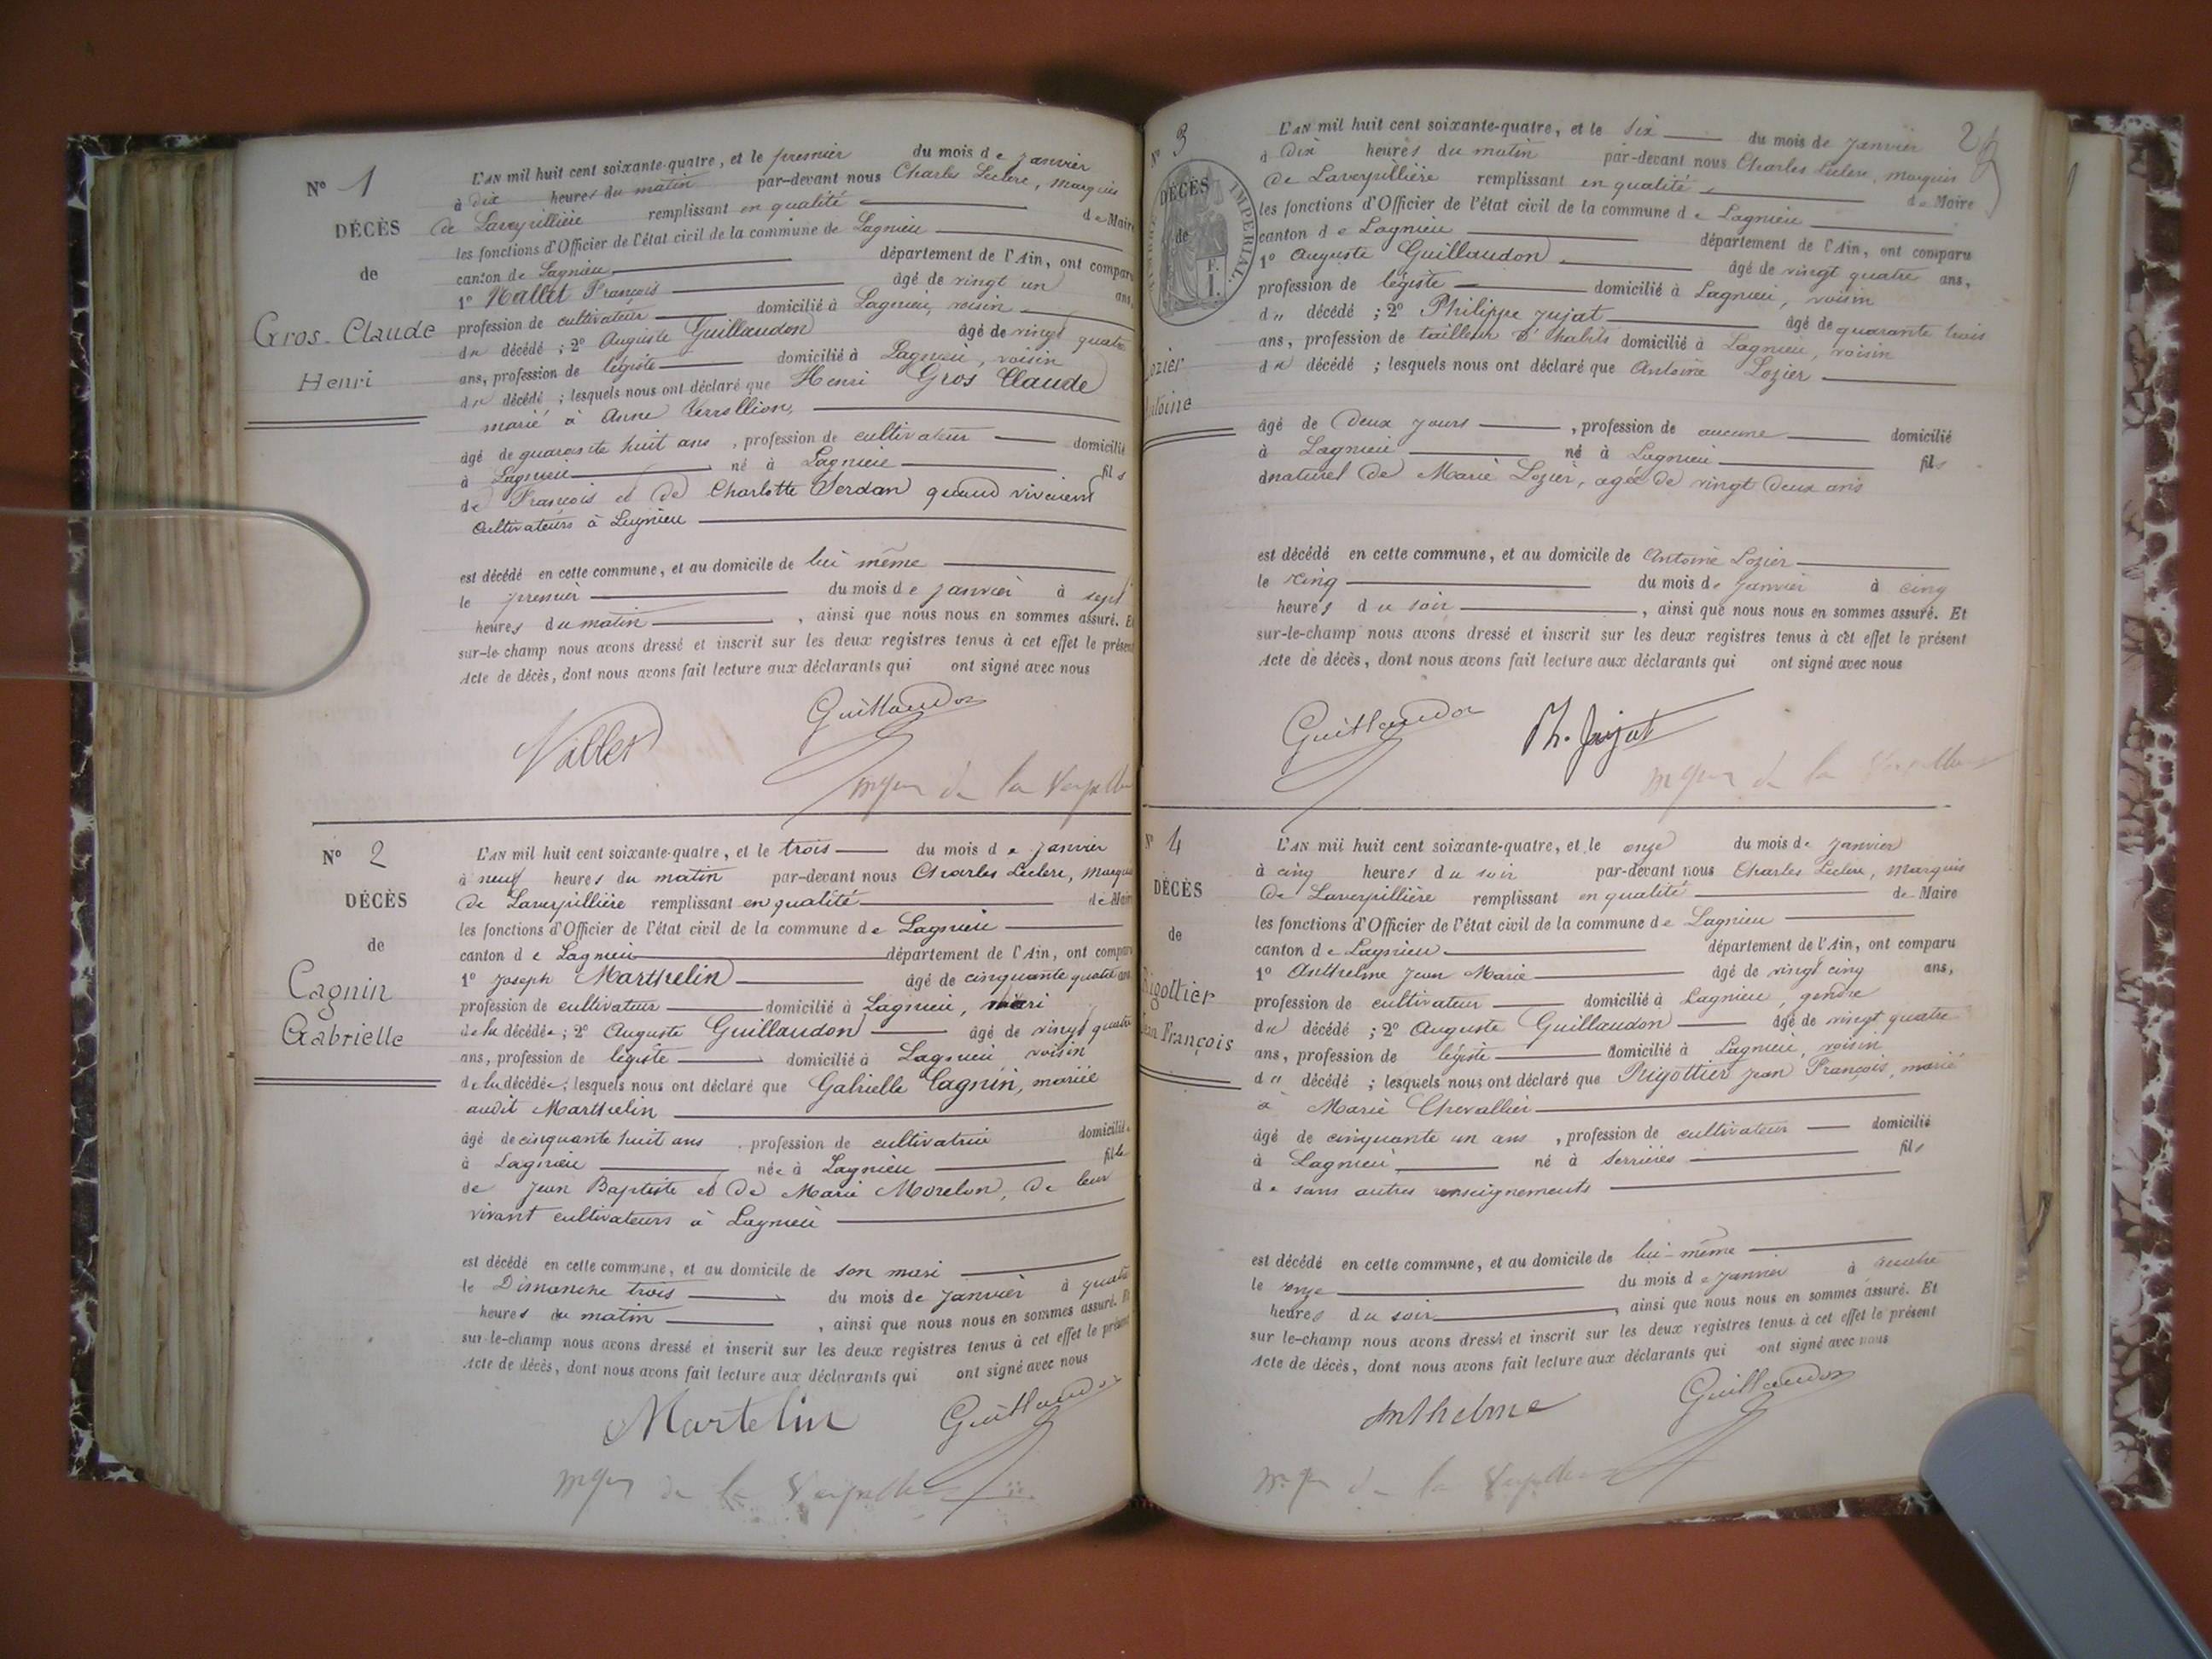 N° 1
DÉCÈS
de
Gros-Claude
Henri
L'AN mil huit cent soixante-quatre, et le premier du mois de janvier
à dix heures du matin par-devant nous Charles Leclerc, marquis
de Laverpillière remplissant en qualité de Maire
les fonctions d'Officier de l'état civil de la commune de Lagnieu
canton de Lagnieu département de l'Ain, ont comparu
1° François âgé de vingt un ans,
profession de cultivateur domicilié à Lagnieu, voisin
du décédé ; 2° Auguste Guillaudon âgé de vingt quatre
ans, profession de légiste domicilié à Lagnieu, voisin
du décédé ; lesquels nous ont déclaré que Henri Gros Claude
marié à Anne
âgé de quarante huit ans, profession de cultivateur domicilié
à Lagnieu né à Lagnieu fils
de François et de Charlotte Serdan quand vivaient
cultivateurs à Lagnieu
est décédé en cette commune, et au domicile de lui même
le premier du mois de janvier à sept
heures du matin, ainsi que nous nous en sommes assuré. Et
sur-le-champ nous avons dressé et inscrit sur les deux registres tenus à cet effet le présent
Acte de décès, dont nous avons fait lecture aux déclarants qui ont signé avec nous
Guillaudon
N° 2
DÉCÈS
de
Cagnin
Gabrielle
L'AN mil huit cent soixante-quatre, et le trois du mois de janvier
à neuf heures du matin par-devant nous Charles Leclerc, marquis
de Laverpillière remplissant en qualité de Maire
les fonctions d'Officier de l'état civil de la commune de Lagnieu
canton de Lagnieu département de l'Ain, ont comparu
1° Joseph Marthelin âgé de cinquante quatre ans
profession de cultivateur domicilié à Lagnieu, mari
de la décédée ; 2° Auguste Guillaudon âgé de vingt quatre
ans, profession de légiste domicilié à Lagnieu voisin
de la décédée ; lesquels nous ont déclaré que Gabrielle Cagnin, mariée
audit Marthelin
âgé de cinquante huit ans, profession de cultivatrice domiciliée
à Lagnieu née à Lagnieu fille
de Jean Baptiste et de Marie Morelon, de leur
vivant cultivateurs à Lagnieu
est décédé en cette commune, et au domicile de son mari
le Dimanche trois du mois de janvier à quatre
heures du matin, ainsi que nous nous en sommes assuré. Et
sur-le-champ nous avons dressé et inscrit sur les deux registres tenus à cet effet le présent
Acte de décès, dont nous avons fait lecture aux déclarants qui ont signé avec nous
Martelin Guillaudon
N° 3
2
DÉCÈS
de
TIMBRE IMPÉRIAL
F.
1.
Lozier
Antoine
L'AN mil huit cent soixante-quatre, et le six du mois de janvier
à dix heures du matin par-devant nous Charles Leclerc, marquis
de Laverpillière remplissant en qualité de Maire
les fonctions d'Officier de l'état civil de la commune de Lagnieu
canton de Lagnieu département de l'Ain, ont comparu
1° Auguste Guillaudon âgé de vingt quatre ans,
profession de légiste domicilié à Lagnieu, voisin
du décédé ; 2° Philippe Jujat âgé de quarante trois
ans, profession de tailleur d'habits domicilié à Lagnieu, voisin
du décédé ; lesquels nous ont déclaré que Antoine Lozier
âgé de deux jours, profession de aucune domicilié
à Lagnieu né à Lagnieu fils
dnaturel de Marie Lozier, agée de vingt deux ans
est décédé en cette commune, et au domicile de Antoine Lozier
le cinq du mois de janvier à cinq
heures du soir, ainsi que nous nous en sommes assuré. Et
sur-le-champ nous avons dressé et inscrit sur les deux registres tenus à cet effet le présent
Acte de décès, dont nous avons fait lecture aux déclarants qui ont signé avec nous
Guillaudon Ph. Jujat
N° 4
DÉCÈS
de
Rigottier
Jean François
L'AN mil huit cent soixante-quatre, et le onze du mois de janvier
à cinq heures du soir par-devant nous Charles Leclerc, marquis
de Laverpillière remplissant en qualité de Maire
les fonctions d'Officier de l'état civil de la commune de Lagnieu
canton de Lagnieu département de l'Ain, ont comparu
1° Anthelme Jean Marie âgé de vingt cinq ans,
profession de cultivateur domicilié à Lagnieu, gendre
du décédé ; 2° Auguste Guillaudon âgé de vingt quatre
ans, profession de légiste domicilié à Lagnieu, voisin
du décédé ; lesquels nous ont déclaré que Rigottier Jean François, marié
à Marie Chevallier
âgé de cinquante un ans, profession de cultivateur domicilié
à Lagnieu né à Serrières fils
de sans autres renseignements
est décédé en cette commune, et au domicile de lui-même
le onze du mois de janvier à quatre
heures du soir, ainsi que nous nous en sommes assuré. Et
sur-le-champ nous avons dressé et inscrit sur les deux registres tenus à cet effet le présent
Acte de décès, dont nous avons fait lecture aux déclarants qui ont signé avec nous
Anthelme Guillaudon